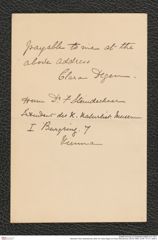 payable to me at the
above address
Clara
Herrn Dr F Steindachner
Intendent des K. Naturhist Museum
I Burgring. 7
Vienna